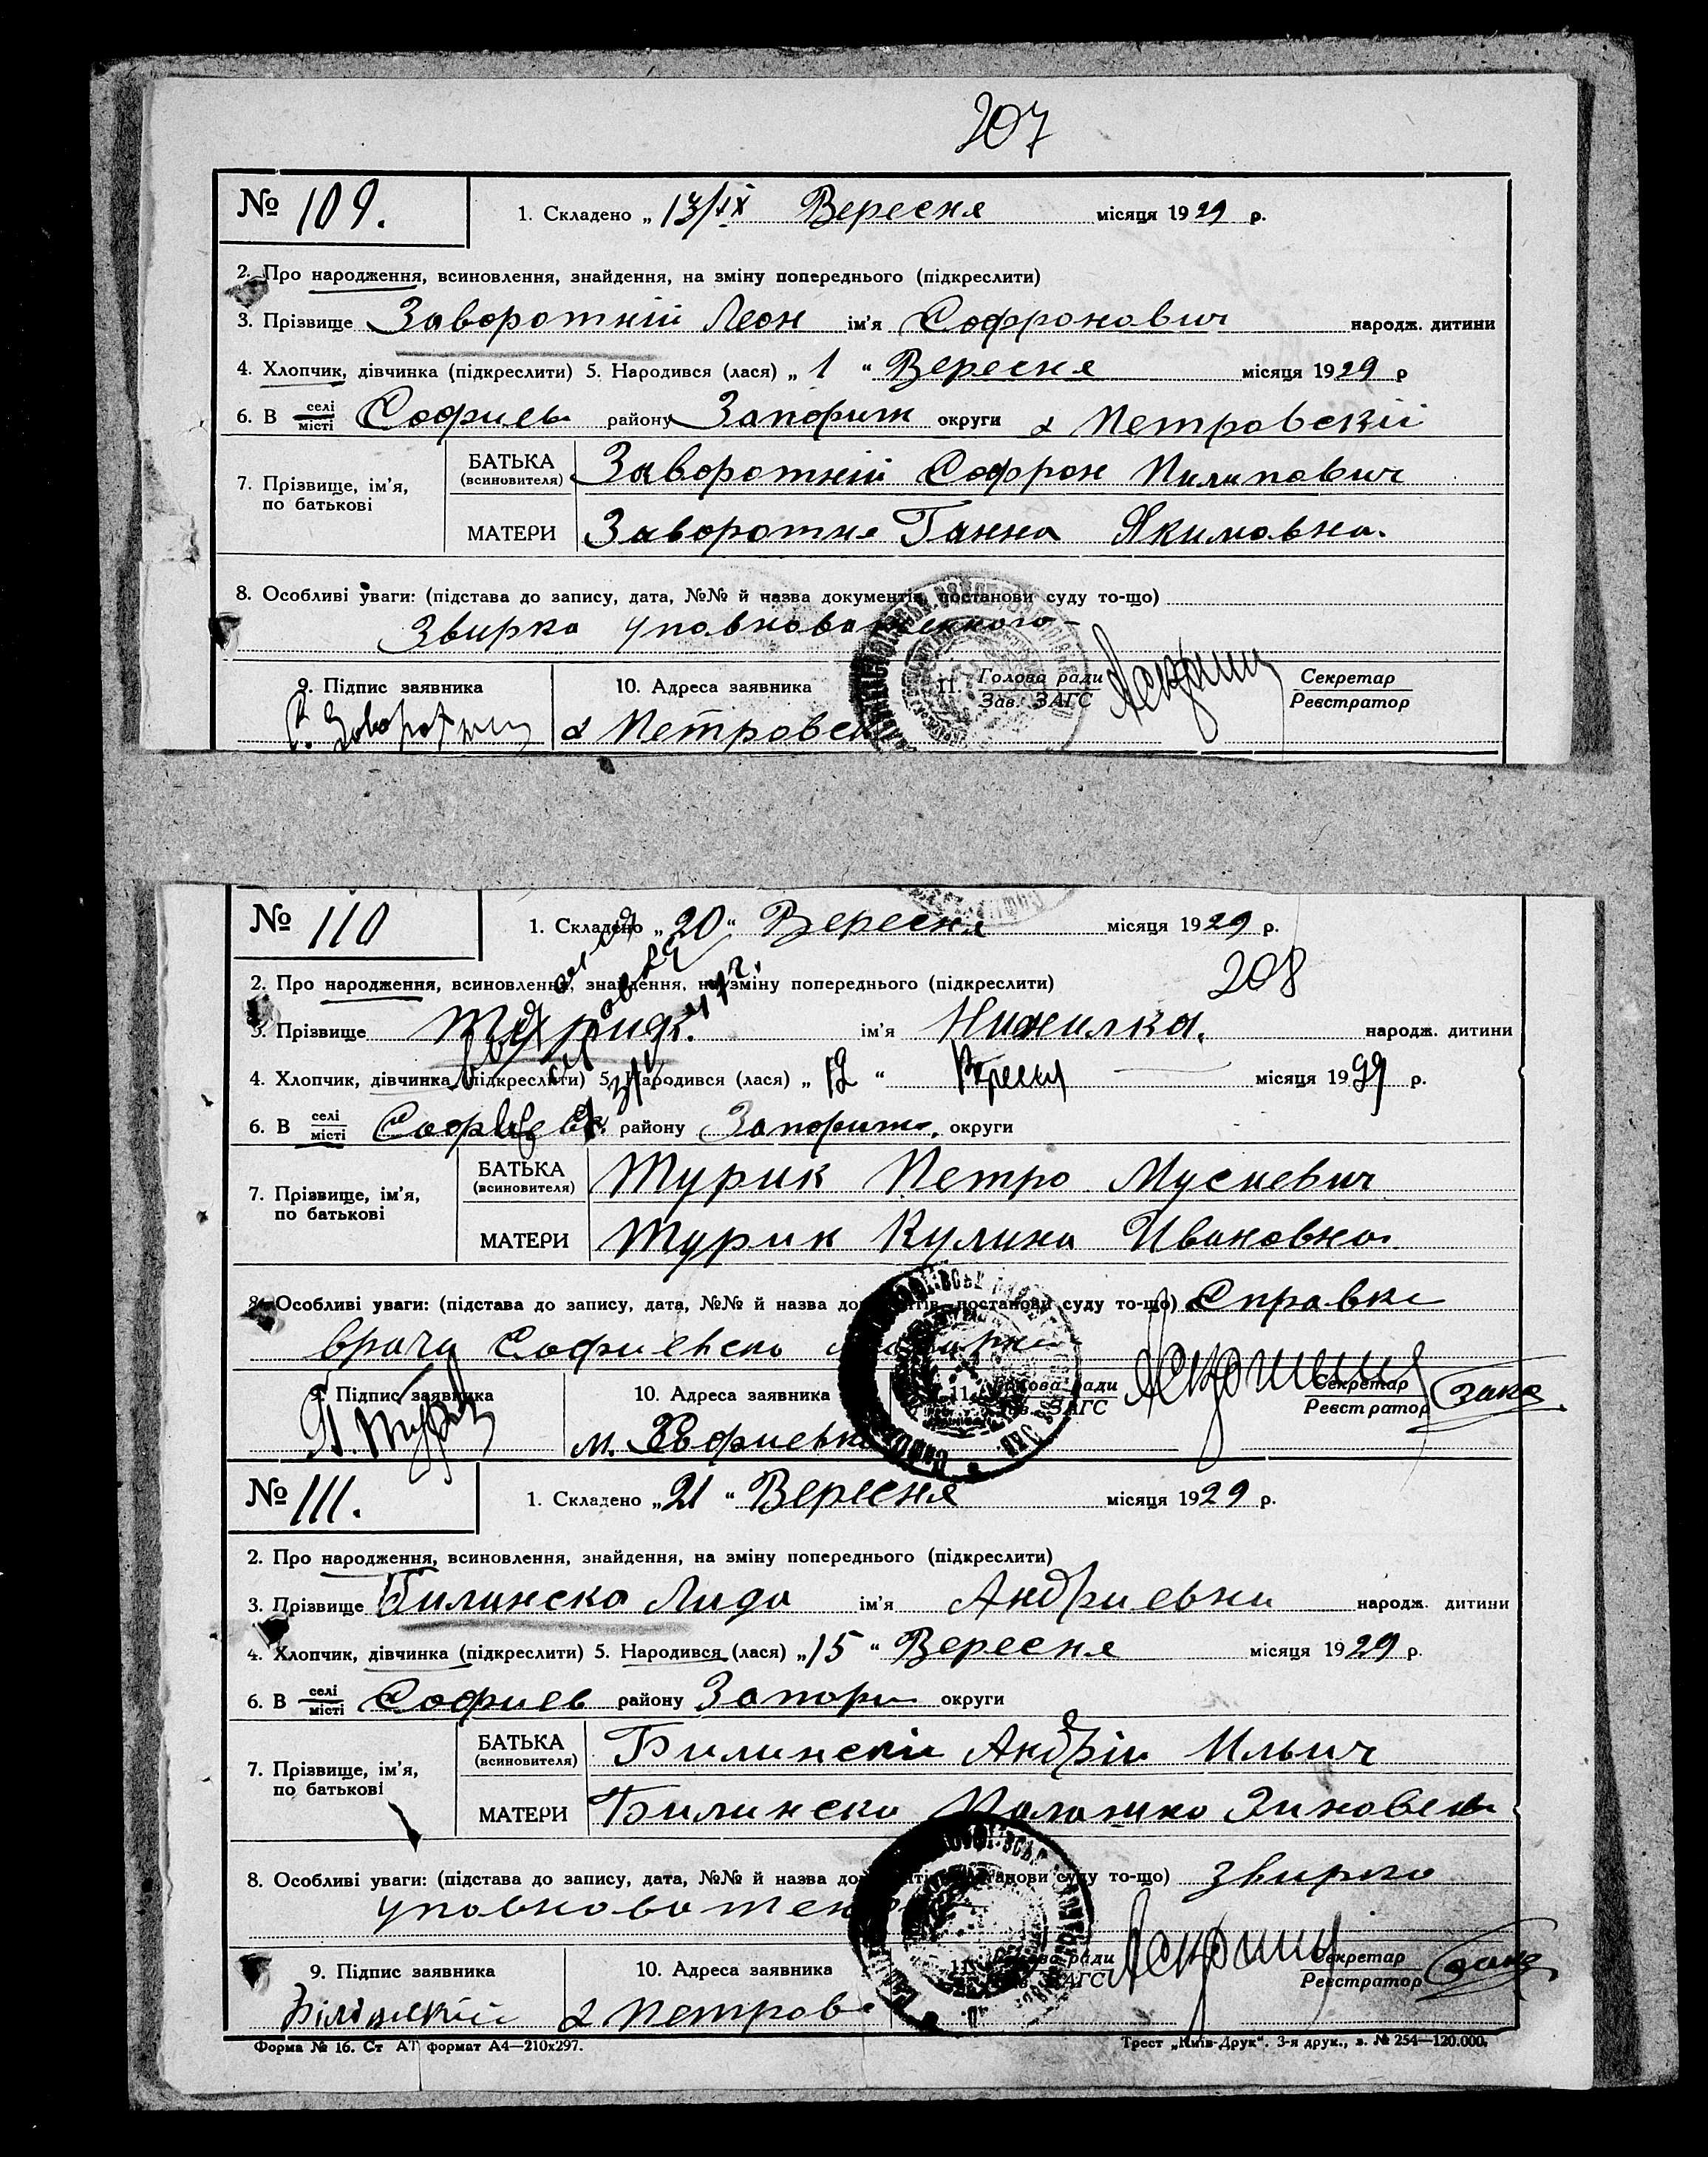 207
№ 109.
1. Складено „ 13/IX Вересня місяця 1929 р.
2. Про народження, всиновлення, знайдення, на зміну попереднього (підкреслити)
3. Прізвище Заворотній Леон ім'я Софронович народж. дитини
4. Хлопчик, дівчинка (підкреслити) 5. Народився (лася) „ 1 “ Вересня місяця 1929 р
6. В селі місті Софиев району Запориж округи х Петровскій
7. Прізвище, ім'я, по батькові
БАТЬКА (всиновителя) Заворотній Софрон Пилипович
МАТЕРИ Заворотня Ганна Якимовна.
8. Особливі уваги: (підстава до запису, дата, №№ й назва документів, постанови суду то-що)
Звирка уповноваженного
9. Підпис заявника
10. Адреса заявника
11. Голова ради Зав. ЗАГС
Секретар Реєстратор
х Петровск
№ 110
1. Складено „ 20 “ Вересня місяця 1929 р.
208
2. Про народження, всиновлення, знайдення, на зміну попереднього (підкреслити)
3. Прізвище ім'я народж. дитини
4. Хлопчик, дівчинка (підкреслити) 5. Народився (лася) „ 12 “ Вересня місяця 1929 р.
6. В селі місті району Запориж. округи
7. Прізвище, ім'я, по батькові
БАТЬКА (всиновителя) Турик Петро Мусиевич
МАТЕРИ Турик Кулина Ивановна.
8. Особливі уваги: (підстава до запису, дата, №№ й назва документів, постанови суду то-що) Справка
врача Софиевско
9. Підпис заявника
10. Адреса заявника
11. Голова ради Зав. ЗАГС
Секретар Реєстратор
П. Турик
м. Софиевка
№ 111.
1. Складено „ 21 “ Вересня місяця 1929 р.
2. Про народження, всиновлення, знайдення, на зміну попереднього (підкреслити)
3. Прізвище Билинска Лида ім'я Андриевни народж. дитини
4. Хлопчик, дівчинка (підкреслити) 5. Народився (лася) „ 15 “ Вересня місяця 1929 р.
6. В селі місті Софиев району Запори округи
7. Прізвище, ім'я, по батькові
БАТЬКА (всиновителя) Билинскій Андрій Ильич
МАТЕРИ Билинска Палашка Зиновев
8. Особливі уваги: (підстава до запису, дата, №№ й назва документів, постанови суду то-що) звирка
уповноважен
9. Підпис заявника
10. Адреса заявника
11. Голова ради Зав. ЗАГС
Секретар Реєстратор
Білінскій
х Петров
Форма № 16. Ст АТ формат А4—210х297.
Трест „Київ-Друк“. 3-я друк., з. № 254—120.000.